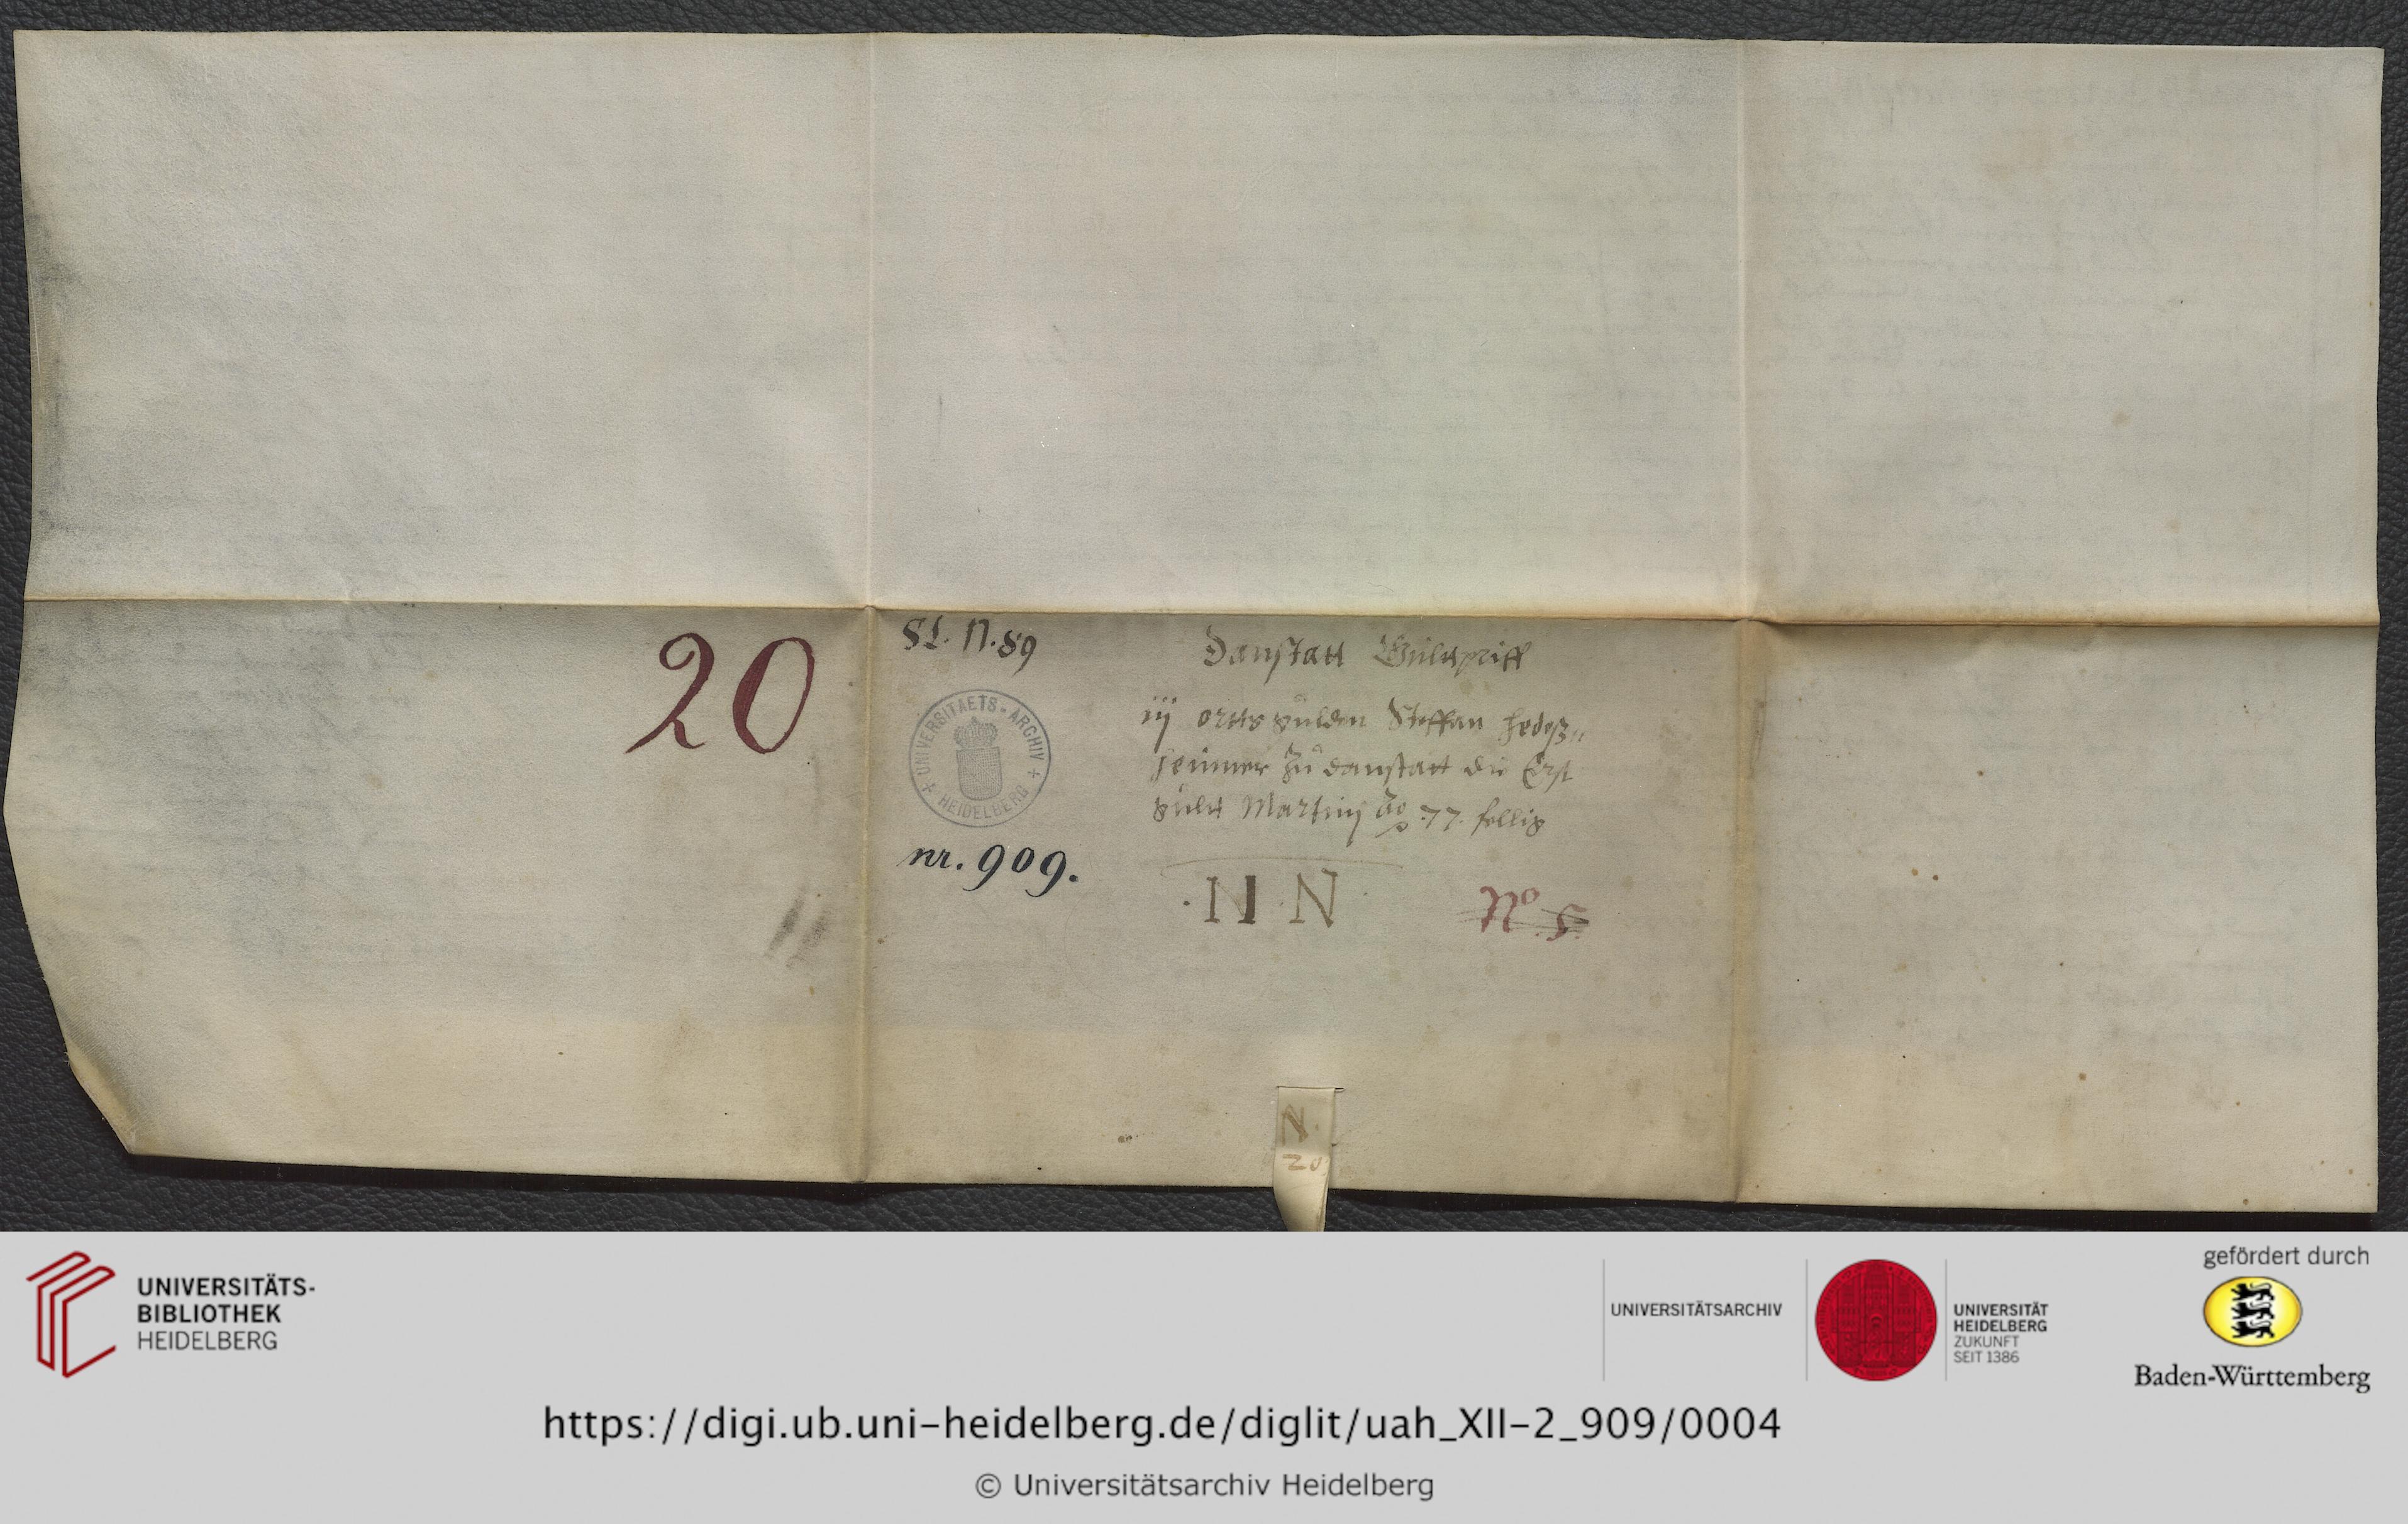 20
Sl. N. 89
UNIVERSITAETS-ARCHIV
HEIDELBERG
nr. 909.
Danstatt Gultpriff
iij ortts gulden Steffan
zu danstatt die Erst
gult Martinj Ao 77. fellig
. N . N .
No. 5.
N.
20
UNIVERSITÄTS-
BIBLIOTHEK
HEIDELBERG
UNIVERSITÄTSARCHIV
UNIVERSITÄT
HEIDELBERG
ZUKUNFT
SEIT 1386
gefördert durch
Baden-Württemberg
https://digi.ub.uni-heidelberg.de/diglit/uah_XII-2_909/0004
© Universitätsarchiv Heidelberg